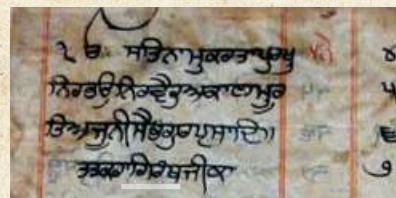 ੧ੳ ਸਤਿਨਾਮੁਕਰਤਾਪੁਰਖੁ
ਨਿਰਭਉਨਿਰਵੈਰੁਅਕਾਲਮੂਰ
ਤਿਅਜੂਨੀਸੈਭੰਗੁਰਪ੍ਰਸਾਦਿ॥
ਤਤਕਰਾਗਿਰੰਥਜੀਕਾ
੪
੫
੬
੭